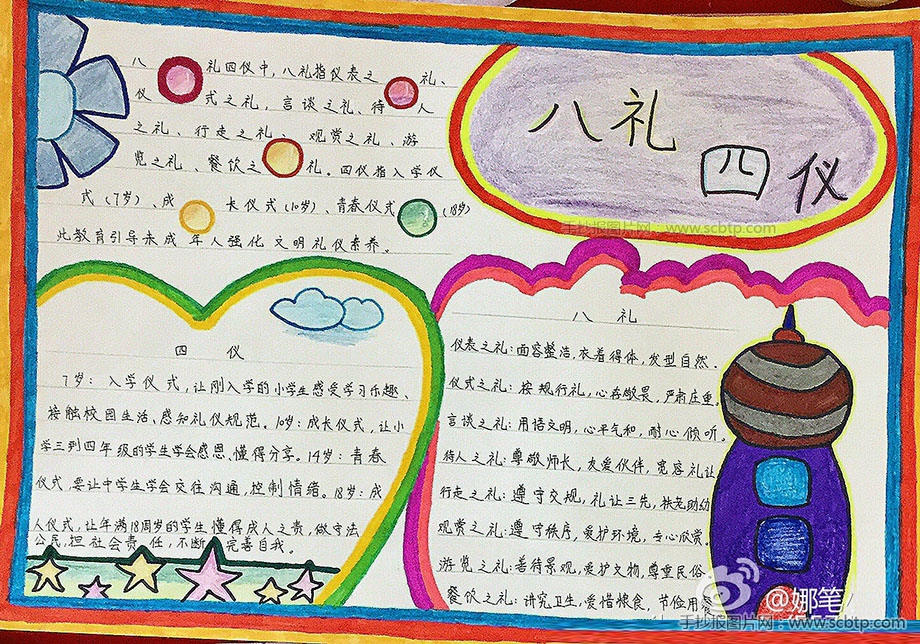 八礼四仪中,八礼指仪表之礼、
仪式之礼,言谈之礼、待人
之礼、行走之礼、观赏之礼、游
览之礼、餐饮之礼。四仪指入学仪
式(7岁)、成长仪式(10岁)、青春仪式(18岁)
此教育引导未成年人强化文明礼仪素养。
八礼
四仪
手抄报图片网:www.scbtp.com
四仪
7岁:入学仪式,让刚入学的小学生感受学习乐趣、
接触校园生活、感知礼仪规范。10岁:成长仪式,让小
学三到四年级的学生学会感恩、懂得分享。14岁:青春
仪式,要让中学生学会交往沟通,控制情绪。18岁:成
人仪式,让年满18周岁的学生懂得成人之责,做守法
公民,担社会责任,不断完善自我。
八礼
仪表之礼:面容整洁,衣着得体,发型自然.
仪式之礼:按规行礼,心存敬畏,严肃庄重.
言谈之礼:用语文明,心平气和,耐心倾听.
待人之礼:尊敬师长,友爱伙伴,宽容礼让
行走之礼:遵守交规,礼让三先,扶老助幼
观赏之礼:遵守秩序,爱护环境,专心欣赏.
游览之礼:善待景观,爱护文物,尊重民俗
餐饮之礼:讲究卫生,爱惜粮食,节俭用餐
@娜笔
手抄报图片网:www.scbtp.com